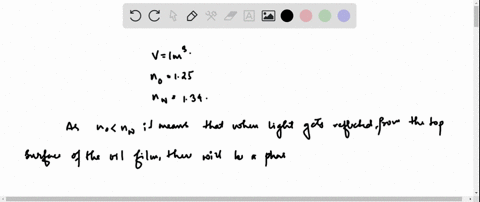 V = 1m³.
n₀ = 1.25
n_w = 1.34.
As n₀ < n_w it means that when light gets reflected, from the top
surface of the oil film, there will be a phas